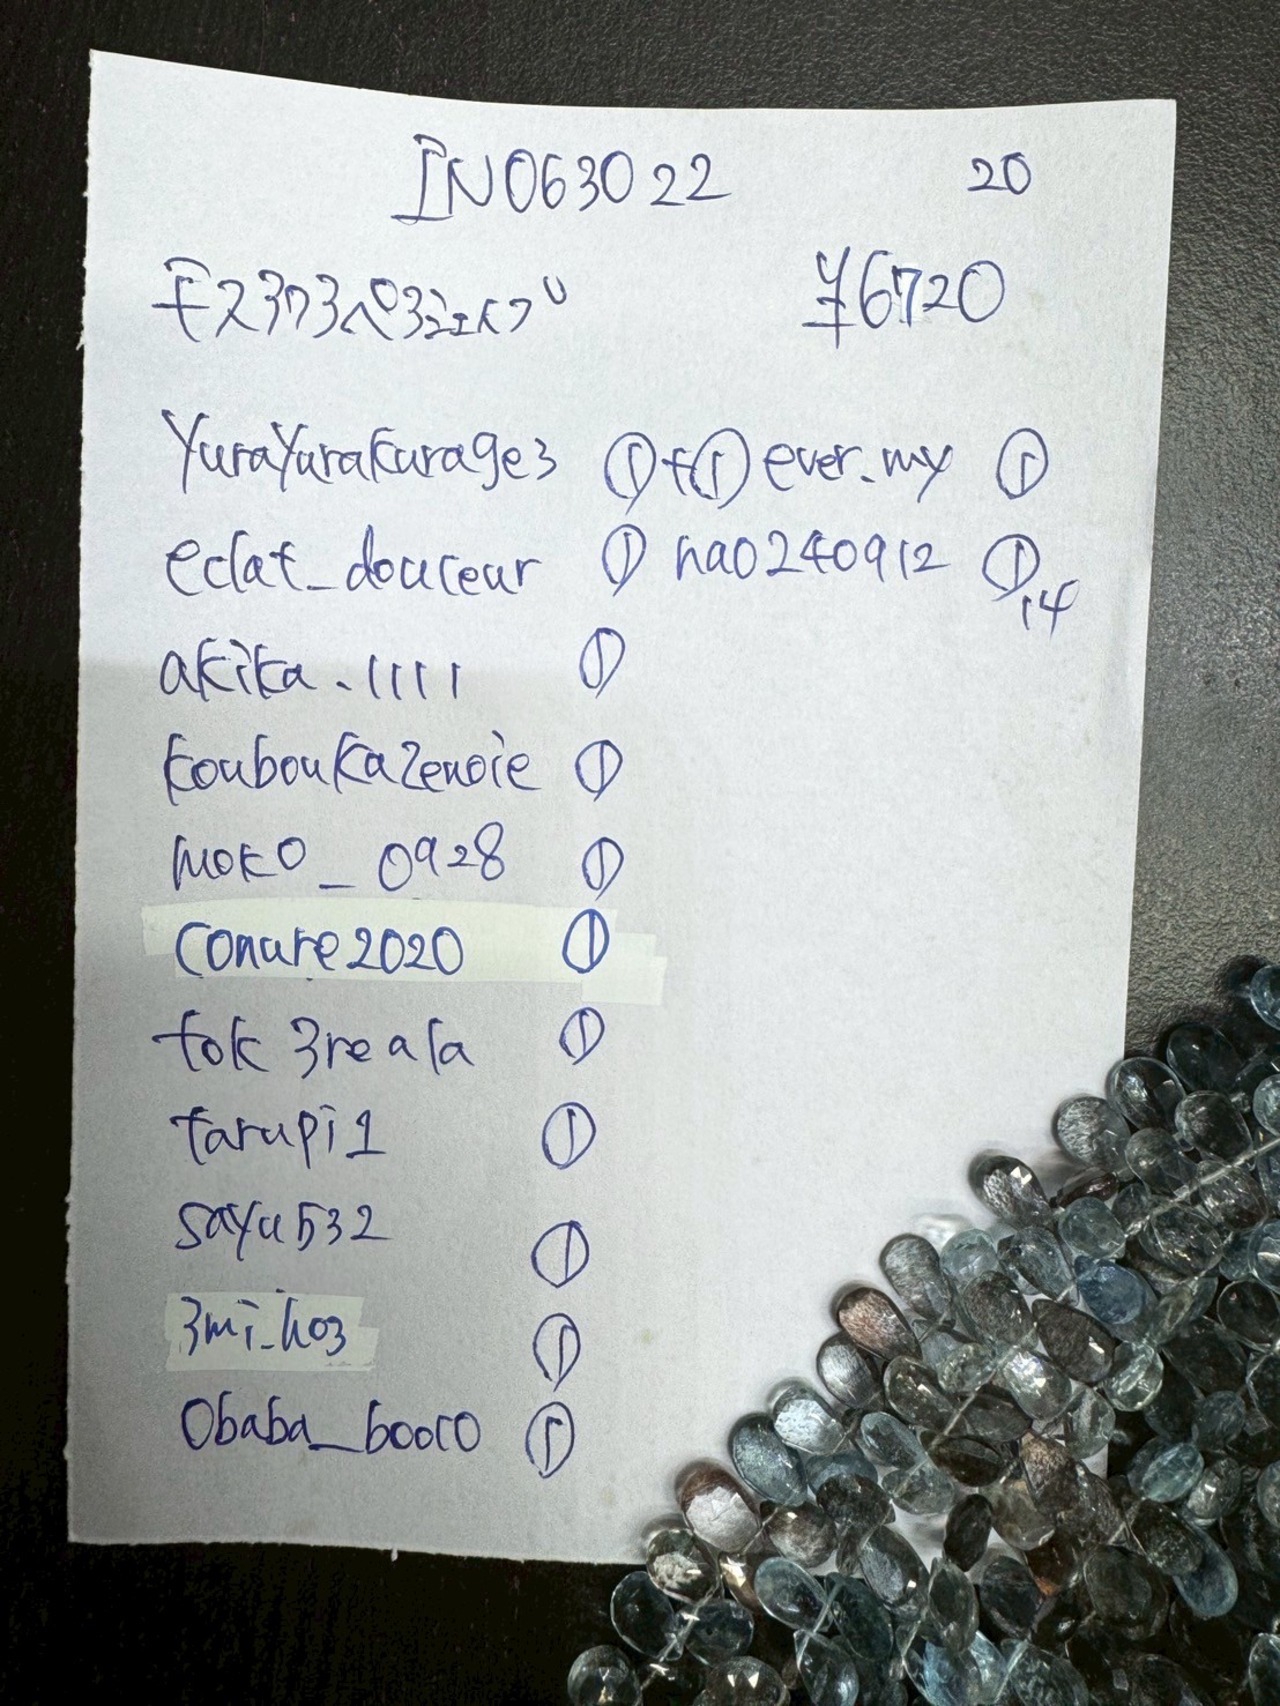 IN063022 20
モスカラペアシェイプ ¥6720
YuraYurakurage3 ①+① ever.my ①
eclat_douceur ① nao240912 ① 14
akika.1111 ①
kouboukazenoie ①
moko_0928 ①
conure2020 ①
tok3reala ①
tarupi1 ①
sayu532 ①
3mi_ho3 ①
Obaba_booco ①